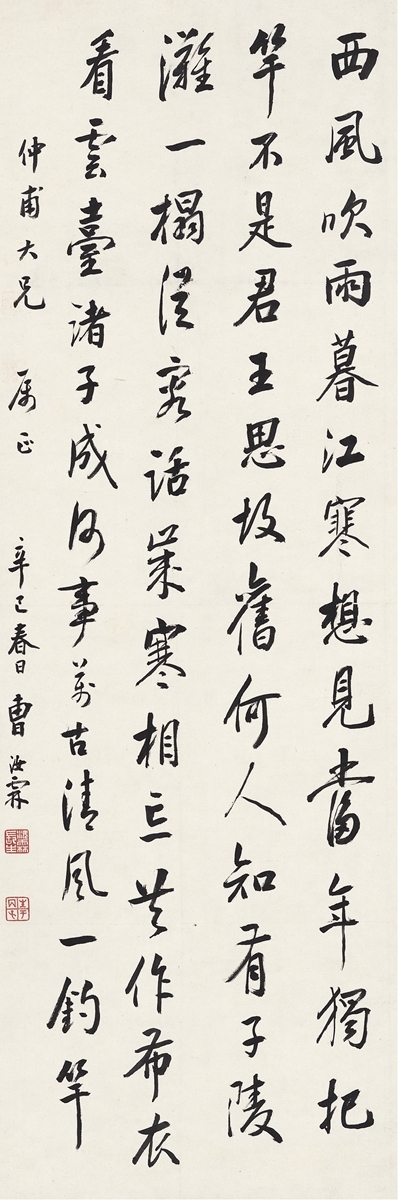 西風吹雨暮江寒想見當年獨把
竿不是君王思故舊何人知有子陵
灘一榻從容話歲寒相忘共作布衣
看雲臺諸子成何事萬古清風一釣竿
仲甫大兄 属正 辛巳春日 曹汝霖